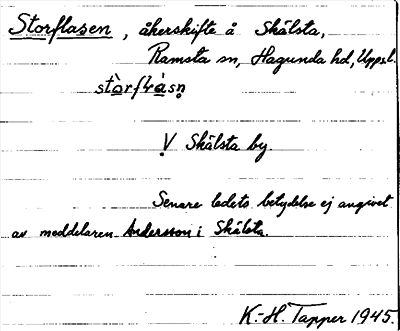 Storflasen, åkerskifte å Skälsta,
Ramsta sn, Hagunda hd, Uppsl.
V Skälsta by.
Senare ledets betydelse ej angivet
av meddelaren Andersson i Skälsta.
K.-H. Tapper 1945.